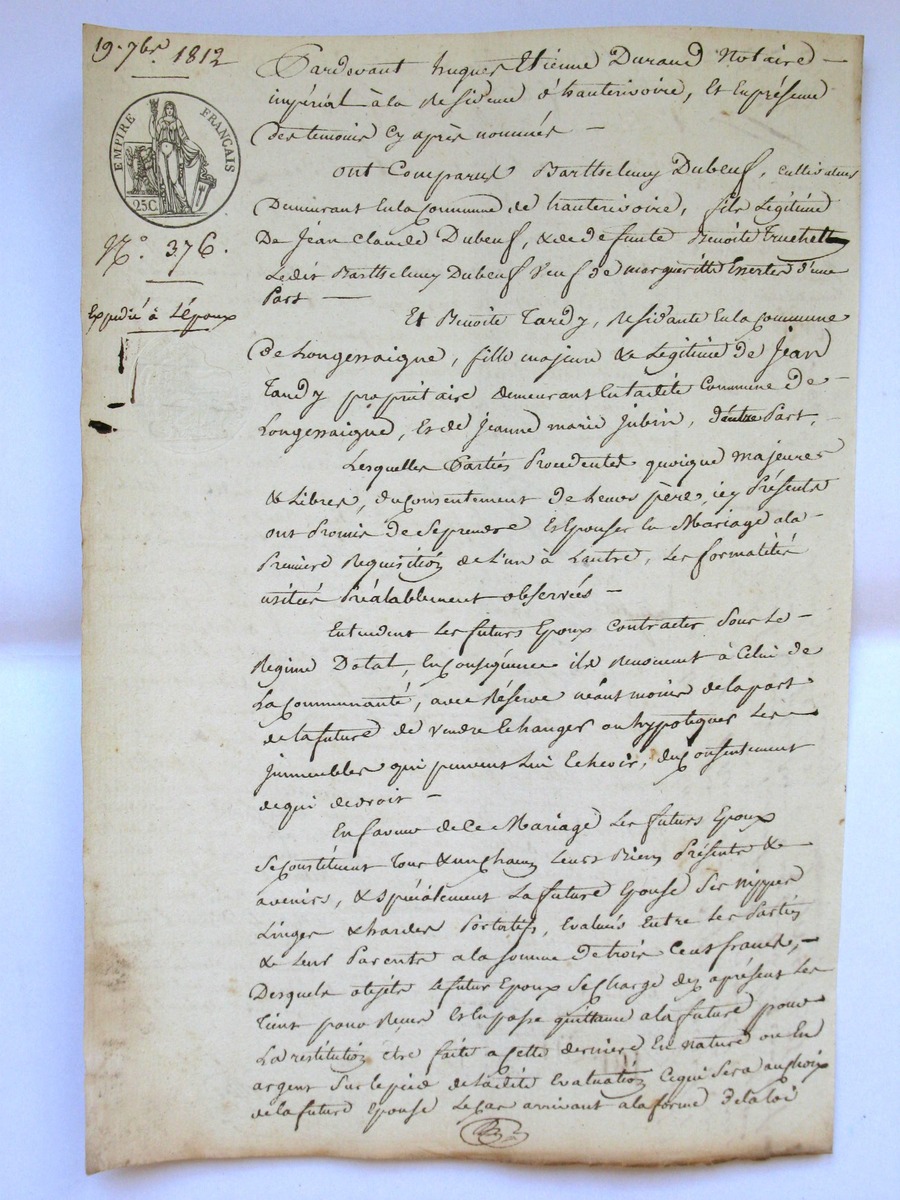 19. 7bre 1812
EMPIRE FRANÇAIS
25C
N.° 376.
Expedié à L'époux
Pardevant hugues Etienne Durand Notaire
impérial à la Residence d'hauterivoire, Et En présence
des temoins Cy après nommés
ont Comparus Barthelemy Dubeuf, Cultivateur
Demeurant En la Commune de hauterivoire, fils Légitime
De Jean Claude Dubeuf, & de defunte Benoite Truchet
Ledit Barthelemy Dubeuf Veuf de margueritte d'une
Part
Et Benoite Tardy, Residante En la Commune
de Longessaigne, fille majeure & Légitime de Jean
Tardy propriétaire demeurant En ladite Commune de
Longessaigne, Et de Jeanne marie Jubin, d'autre Part,
Lesquelles Parties Procedentes quoique majeures
& Libres, du Consentement de Leurs père, icy Présents
ont Promis de Se prendre Et Epouser En Mariage a la
Premiere Requisition de L'un à L'autre, Les formalités
usitées Préalablement observées
Entendent Les futurs Epoux Contracter Sous Le
Regime Dotal, En Conséquence ils Renoncent à Celui de
La Communauté, avec Réserve néantmoins de la part
de la future de Vendre Echanger ou hypotequer Les
immeubles qui peuvent Lui Echeoir, du Consentement
de qui de droit
En faveur de Ce Mariage Les futurs Epoux
Se Constituent Tous & un chacun Leurs Biens Présents &
avenirs, & Spécialement La future Epouse Ses nippes
Linges & hardes Portatifs, Evalués Entre Les Parties
& Leurs Parents a la somme de trois Cents francs,
Desquels objets Le futur Epoux Se Charge dez aprésent Les
Tient pour Reçus Et En passe quittance a la future pour
La restitution Etre faite a Cette derniere En Nature ou En
argent Sur le pied de Ladite Evaluation Ce qui Sera au choix
de la future Epouse Le Cas arrivant a la forme de la loi